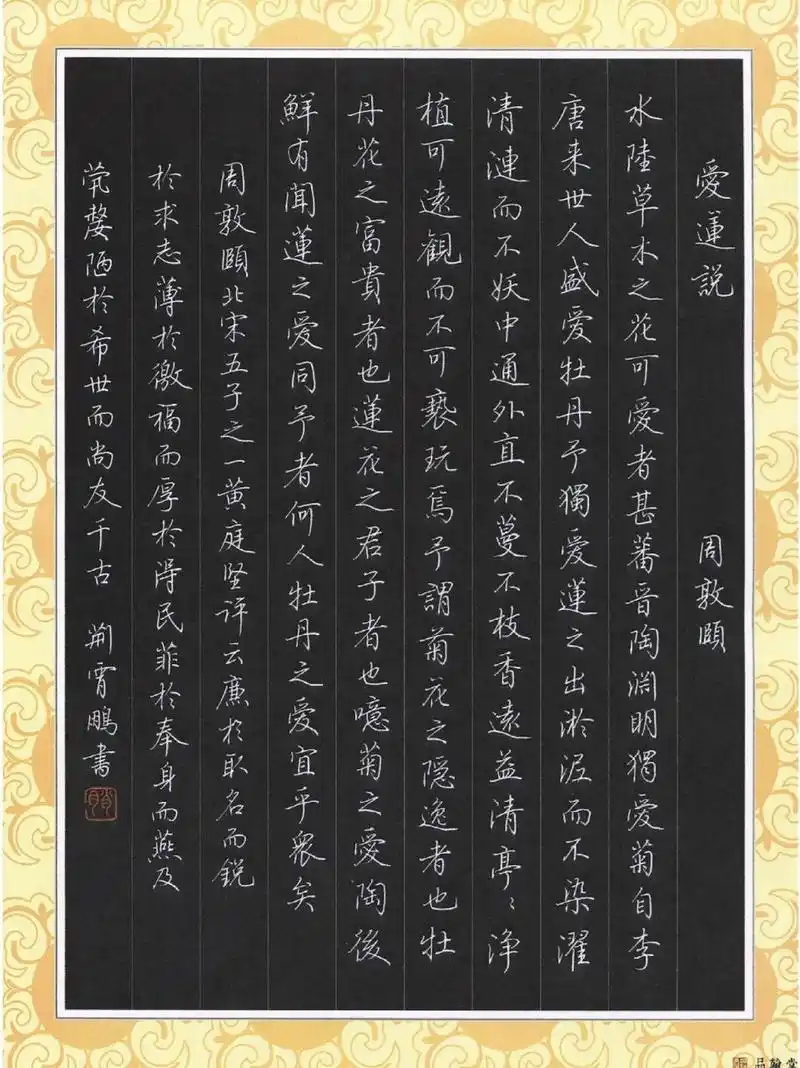 愛蓮説 周敦頤
水陸草木之花可愛者甚蕃晉陶淵明獨愛菊自李
唐来世人盛爱牡丹予獨爱蓮之出淤泥而不染濯
清漣而不妖中通外直不蔓不枝香遠益清亭〻浄
植可遠觀而不可褻玩焉予謂菊花之隱逸者也牡
丹花之富貴者也蓮花之君子者也噫菊之愛陶後
鮮有聞蓮之爱同予者何人牡丹之爱宜乎衆矣
周敦頤北宋五子之一黄庭坚评云廉於取名而銳
於求志薄於徼福而厚於得民菲於奉身而燕及
茕嫠陋於希世而尚友千古 荆霄鵬書
品翰堂